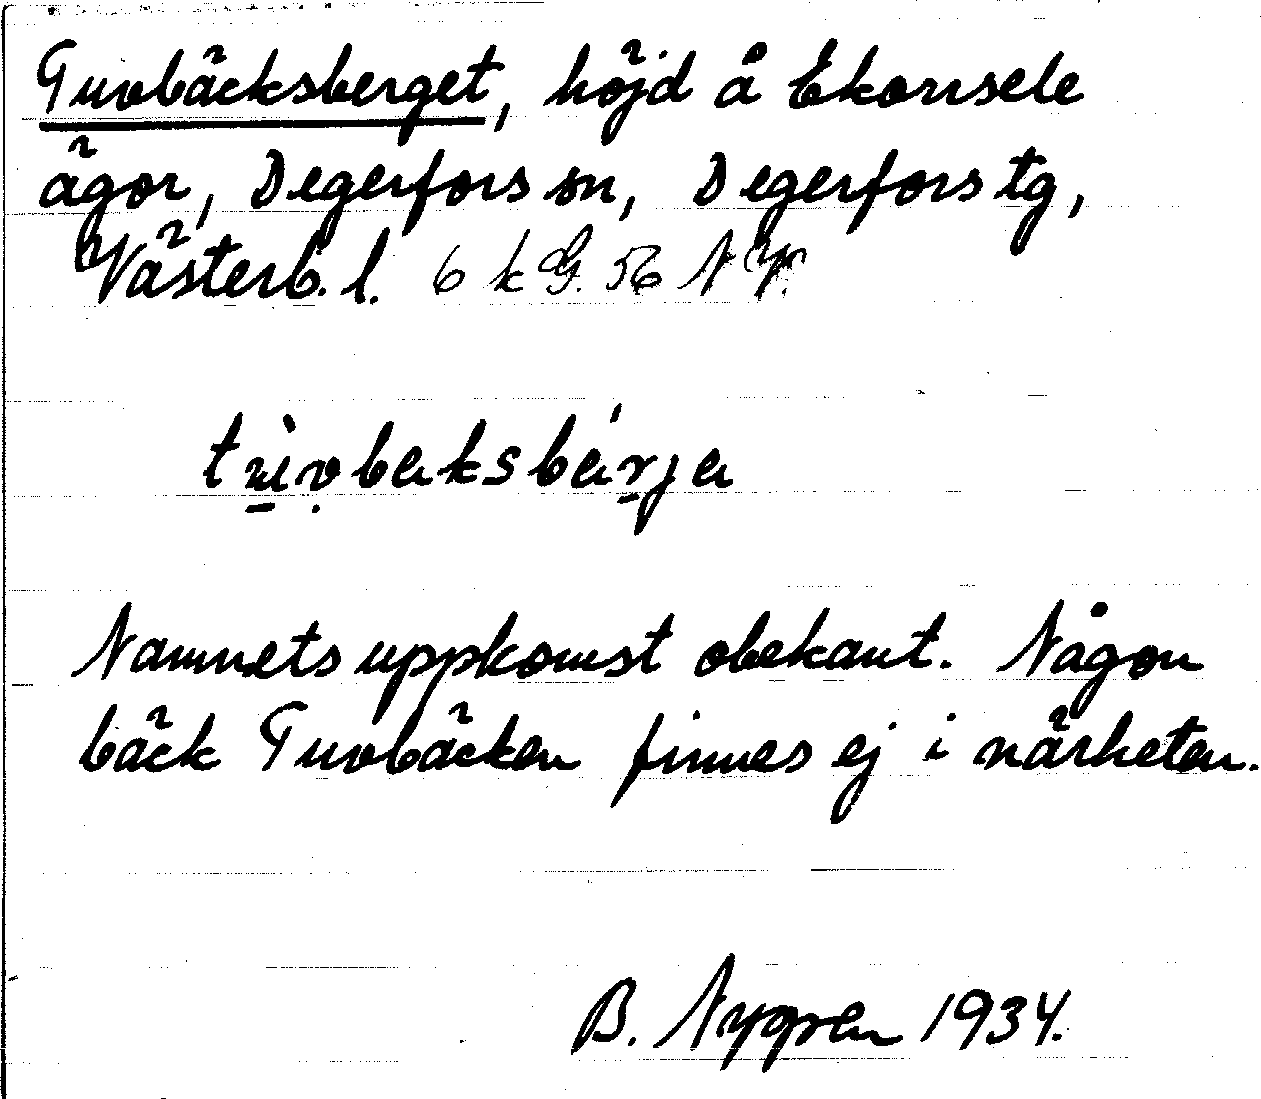 Tuvbäcksberget, höjd å Ekorrsele
ägor, Degerfors sn, Degerfors tg,
Västerb. l. 6 k G. 56 N
Namnets uppkomst obekant. Någon
bäck Tuvbäcken finnes ej i närheten.
B. Nygren 1934.